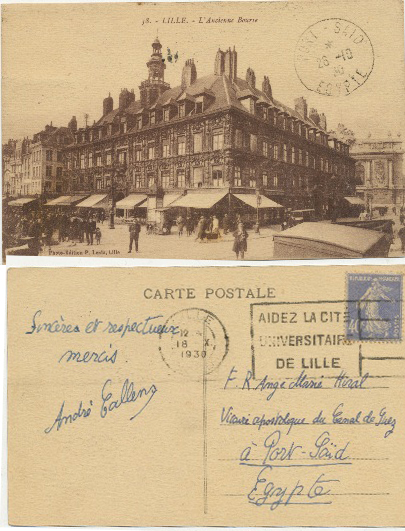 58. - LILLE. - L'Ancienne Bourse
PORT-SAID
26-10
30
EGYPTE
Photo-Edition P. Leclu, Lille
CARTE POSTALE
LILLE
12
18 X.
1930
AIDEZ LA CITE
UNIVERSITAIRE
DE LILLE
Sincères et respectueux
mercis
André
F R Ange Marie Hiral
Vicaire apostolique du Canal de Suez
à Port-Saïd
Egypte